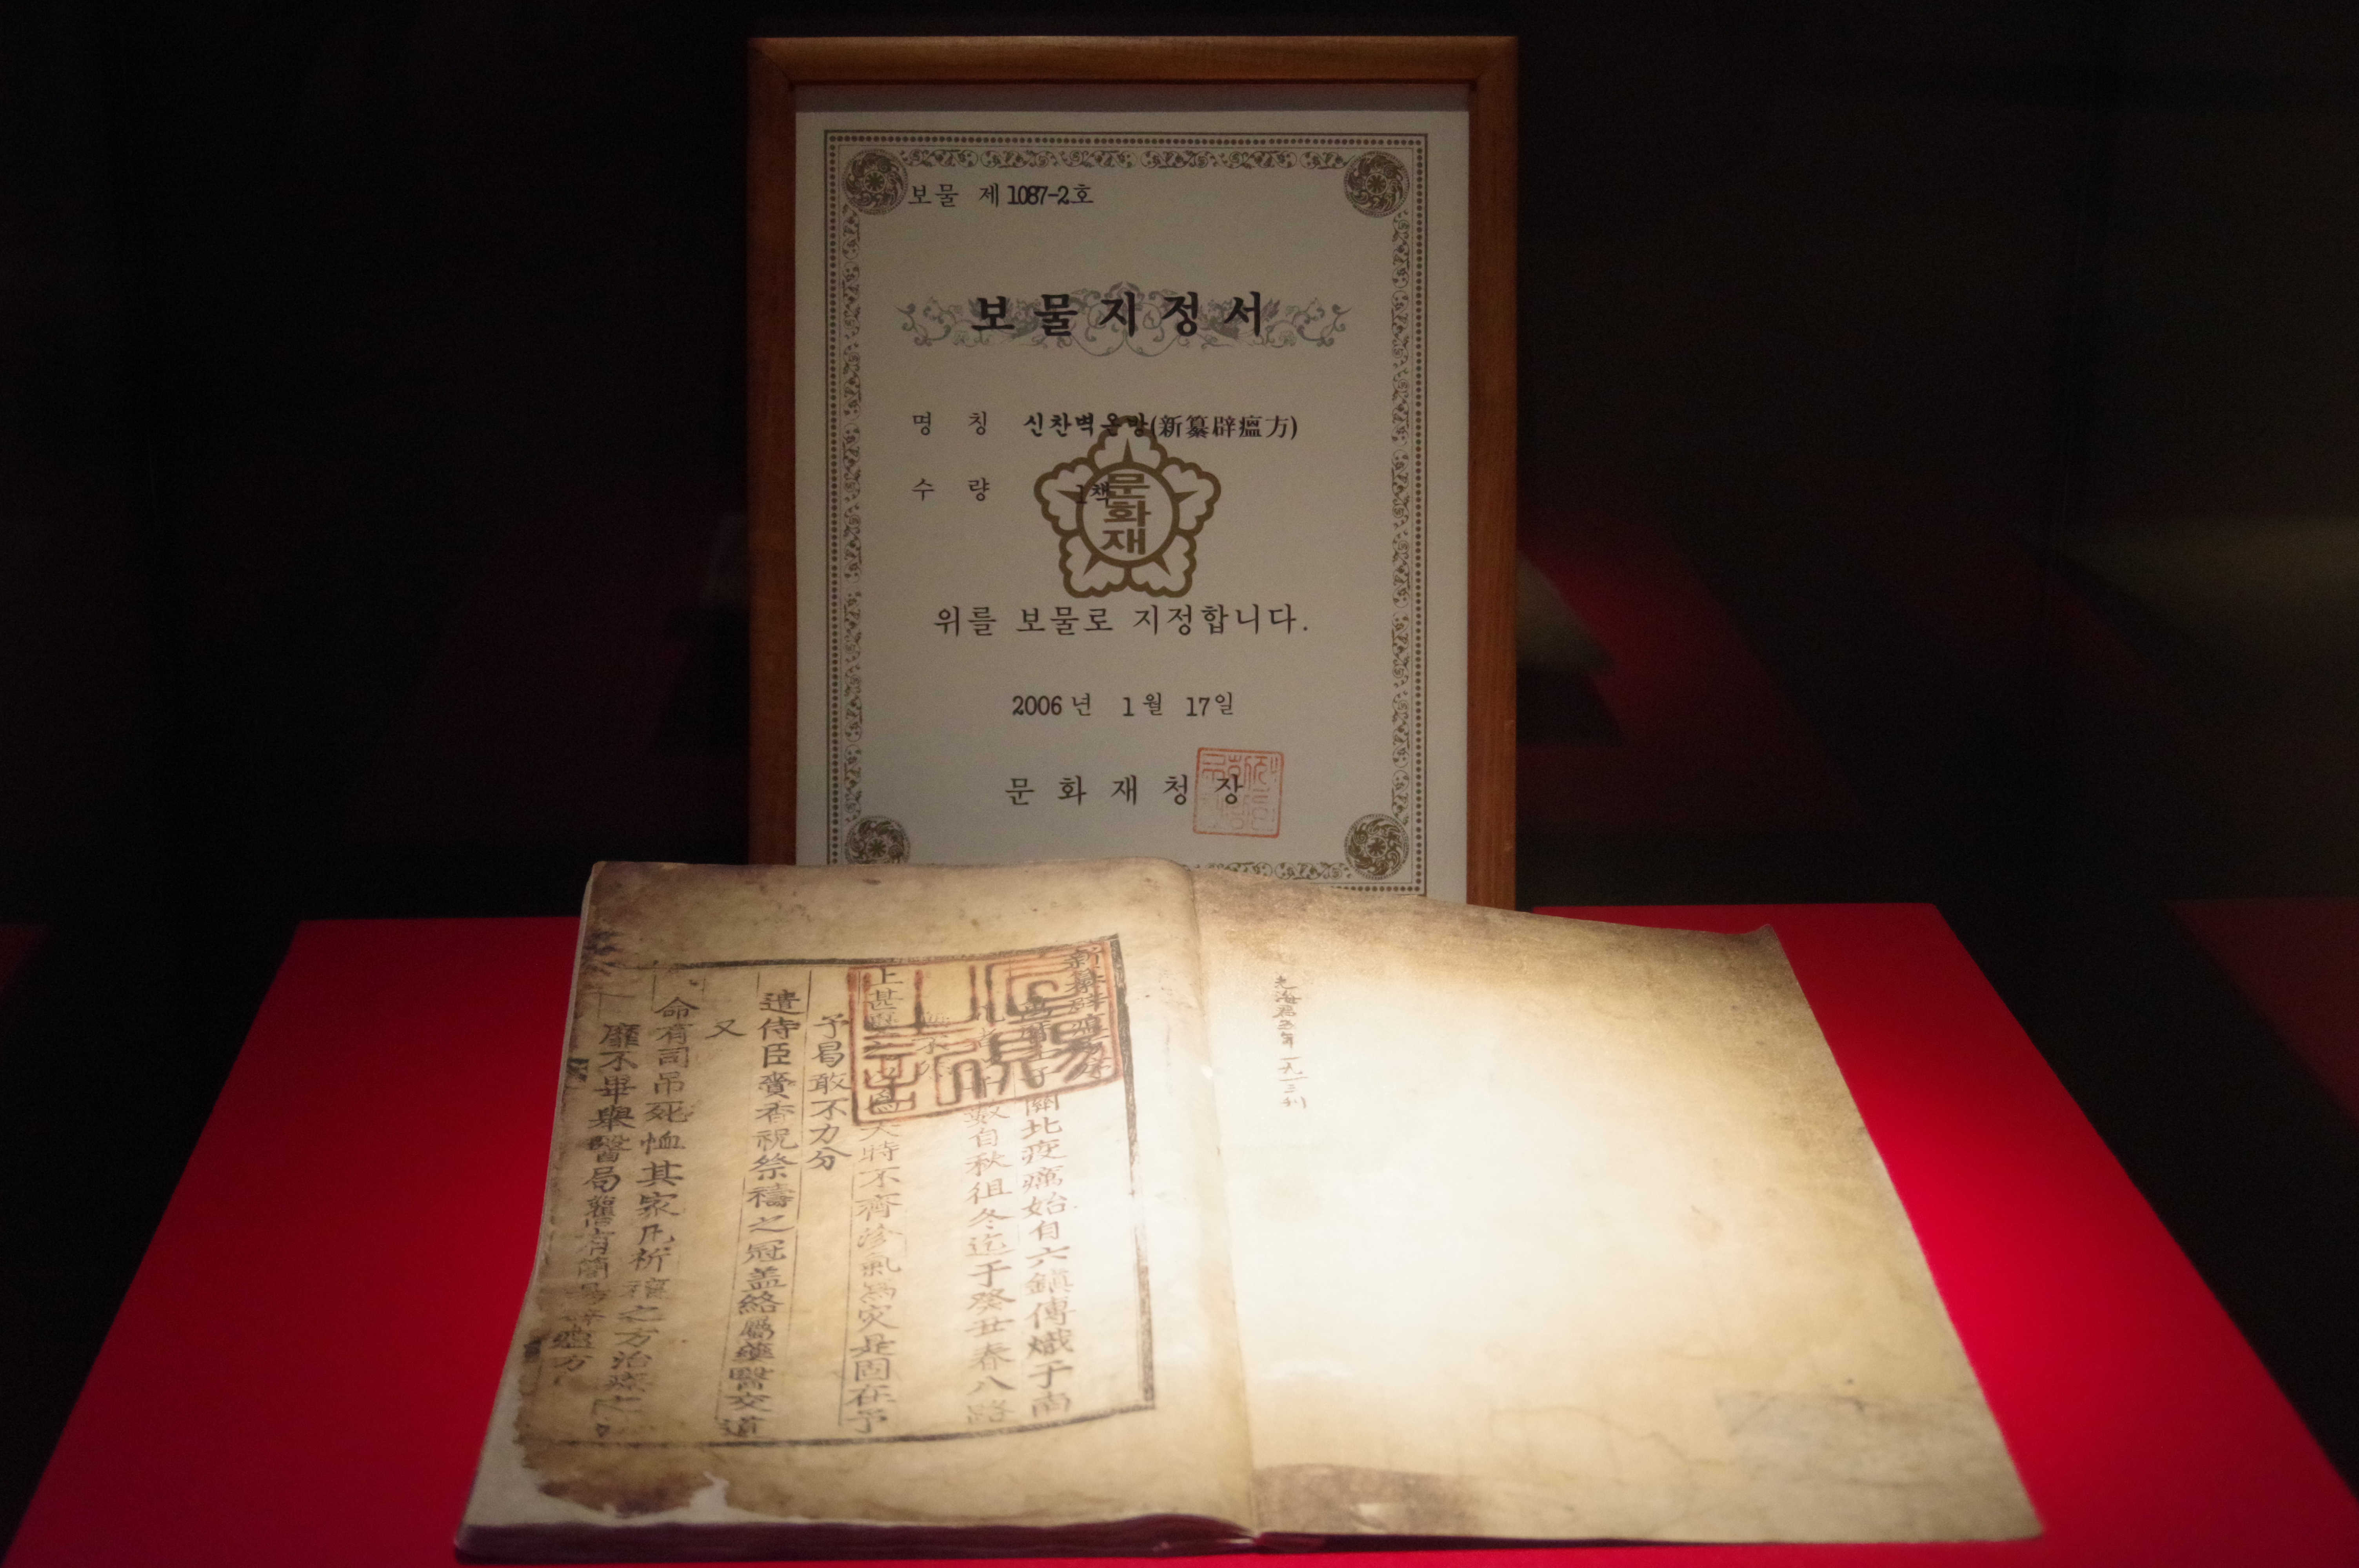 보물 제1087-2호
보물지정서
명 칭 신찬벽온방(新纂辟瘟方)
수 량 1책
문화재
위를 보물로 지정합니다.
2006년 1월 17일
문화재청장
關北疫癘始自六鎭傳熾于南
自秋徂冬迄于癸丑春八路
上甚
天時不齊沴氣爲灾是固在予
予曷敢不力分
遣侍臣賚香祝祭禱之冠盖絡屬藥醫交道
又
命有司吊死恤其家凡祈禳之方治療之
靡不畢擧醫局舊有簡易辟瘟方